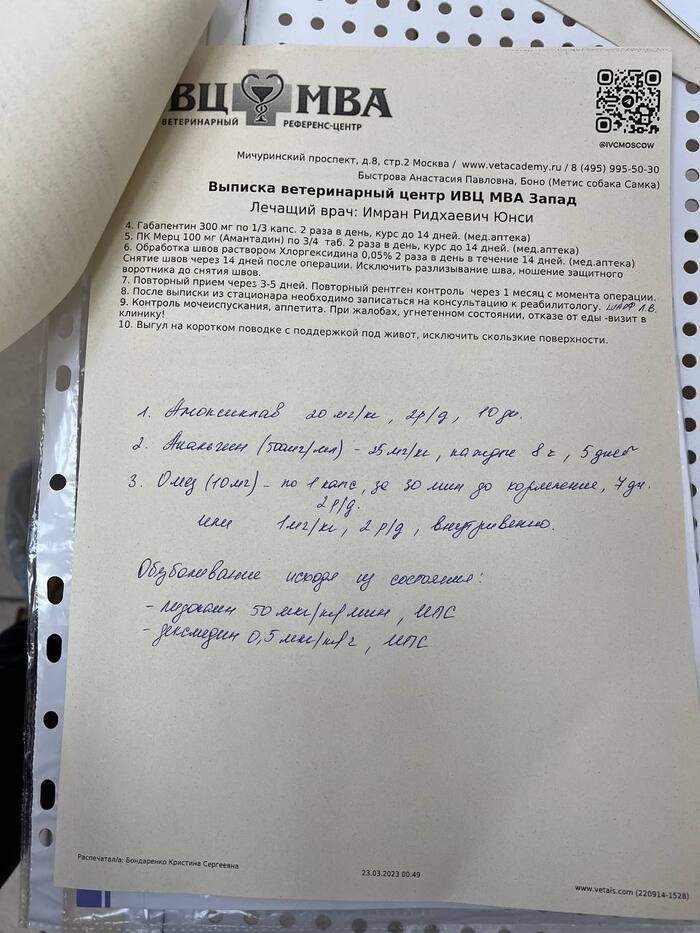 ВЦ МВА
ВЕТЕРИНАРНЫЙ РЕФЕРЕНС-ЦЕНТР
@IVCMOSCOW
Мичуринский проспект, д.8, стр.2 Москва / www.vetacademy.ru / 8 (495) 995-50-30
Быстрова Анастасия Павловна, Боно (Метис собака Самка)
Выписка ветеринарный центр ИВЦ МВА Запад
Лечащий врач: Имран Ридхаевич Юнси
4. Габапентин 300 мг по 1/3 капс. 2 раза в день, курс до 14 дней. (мед.аптека)
5. ПК Мерц 100 мг (Амантадин) по 3/4 таб. 2 раза в день, курс до 14 дней. (мед.аптека)
6. Обработка швов раствором Хлоргексидина 0,05% 2 раза в день в течение 14 дней. (мед.аптека)
Снятие швов через 14 дней после операции. Исключить разлизывание шва, ношение защитного
воротника до снятия швов.
7. Повторный прием через 3-5 дней. Повторный рентген контроль через 1 месяц с момента операции.
8. После выписки из стационара необходимо записаться на консультацию к реабилитологу. Л.В.
9. Контроль мочеиспускания, аппетита. При жалобах, угнетенном состоянии, отказе от еды -визит в
клинику!
10. Выгул на коротком поводке с поддержкой под живот, исключить скользкие поверхности.
1. Амоксиклав 20 мг/кг, 2р/д, 10 дн.
2. Анальгин (500мг/мл) - 25 мг/кг, каждые 8 ч, 5 дней
3. Омез (10мг) - по 1 капс, за 30 мин до кормления, 7 дн.
2 р/д.
или 1мг/кг, 2 р/д, внутривенно.
Обезболивание исходя из состояния:
- лидокаин 50 мкг/кг/мин, ИПС
- дексмедин 0,5 мкг/кг/ч, ИПС
Распечатал/а: Бондаренко Кристина Сергеевна
23.03.2023 00:49
www.vetais.com (220914-1528)